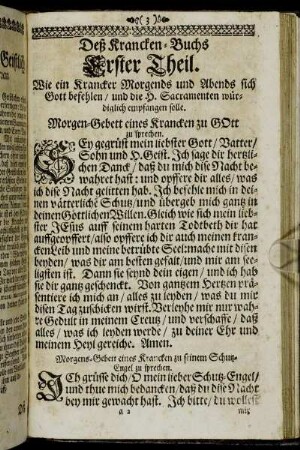 ( 3 )
Deß Krancken-Buchs
Erster Theil.
Wie ein Krancker Morgends und Abends sich
Gott befehlen / und die H. Sacramenten würdiglich empfangen solle.
Morgen-Gebett eines Krancken zu GOtt
zu sprechen.
SEy gegrüst mein liebster Gott / Vatter /
Sohn und H. Geist. Ich sage dir hertzlichen Danck / daß du mich dise Nacht bewahret hast : und opffere dir alles / was
ich dise Nacht gelitten hab. Ich befehle mich in deinen vätterliche Schutz / und übergeb mich gantz in
deinen Göttlichen Willen. Gleich wie sich mein liebster JEsus auff seinem harten Todtbeth dir hat
auffgeopffert / also opffere ich dir auch meinen krancken Leib und meine betrübte Seel: mache mit disen
beyden / was dir am besten gefalt / und mir am seeligsten ist. Dann sie seynd dein eigen / und ich hab
sie dir gantz geschenckt. Von gantzem Hertzen präsentiere ich mich an / alles zu leyden / was du mir
disen Tag zuschicken wirst. Verleyhe mir nur wahre Gedult in meinem Creutz / und verschaffe / daß
alles / was ich leyden werde / zu deiner Ehr und
meinem Heyl gereiche. Amen.
Morgens-Gebett eines Krancken zu seinem Schutz-
Engel zu sprechen.
ICh grüsse dich / O mein lieber Schutz-Engel /
und thue mich bedancken / daß du dise Nacht
bey mir gewacht hast. Ich bitte / du wollest
a 2
mich